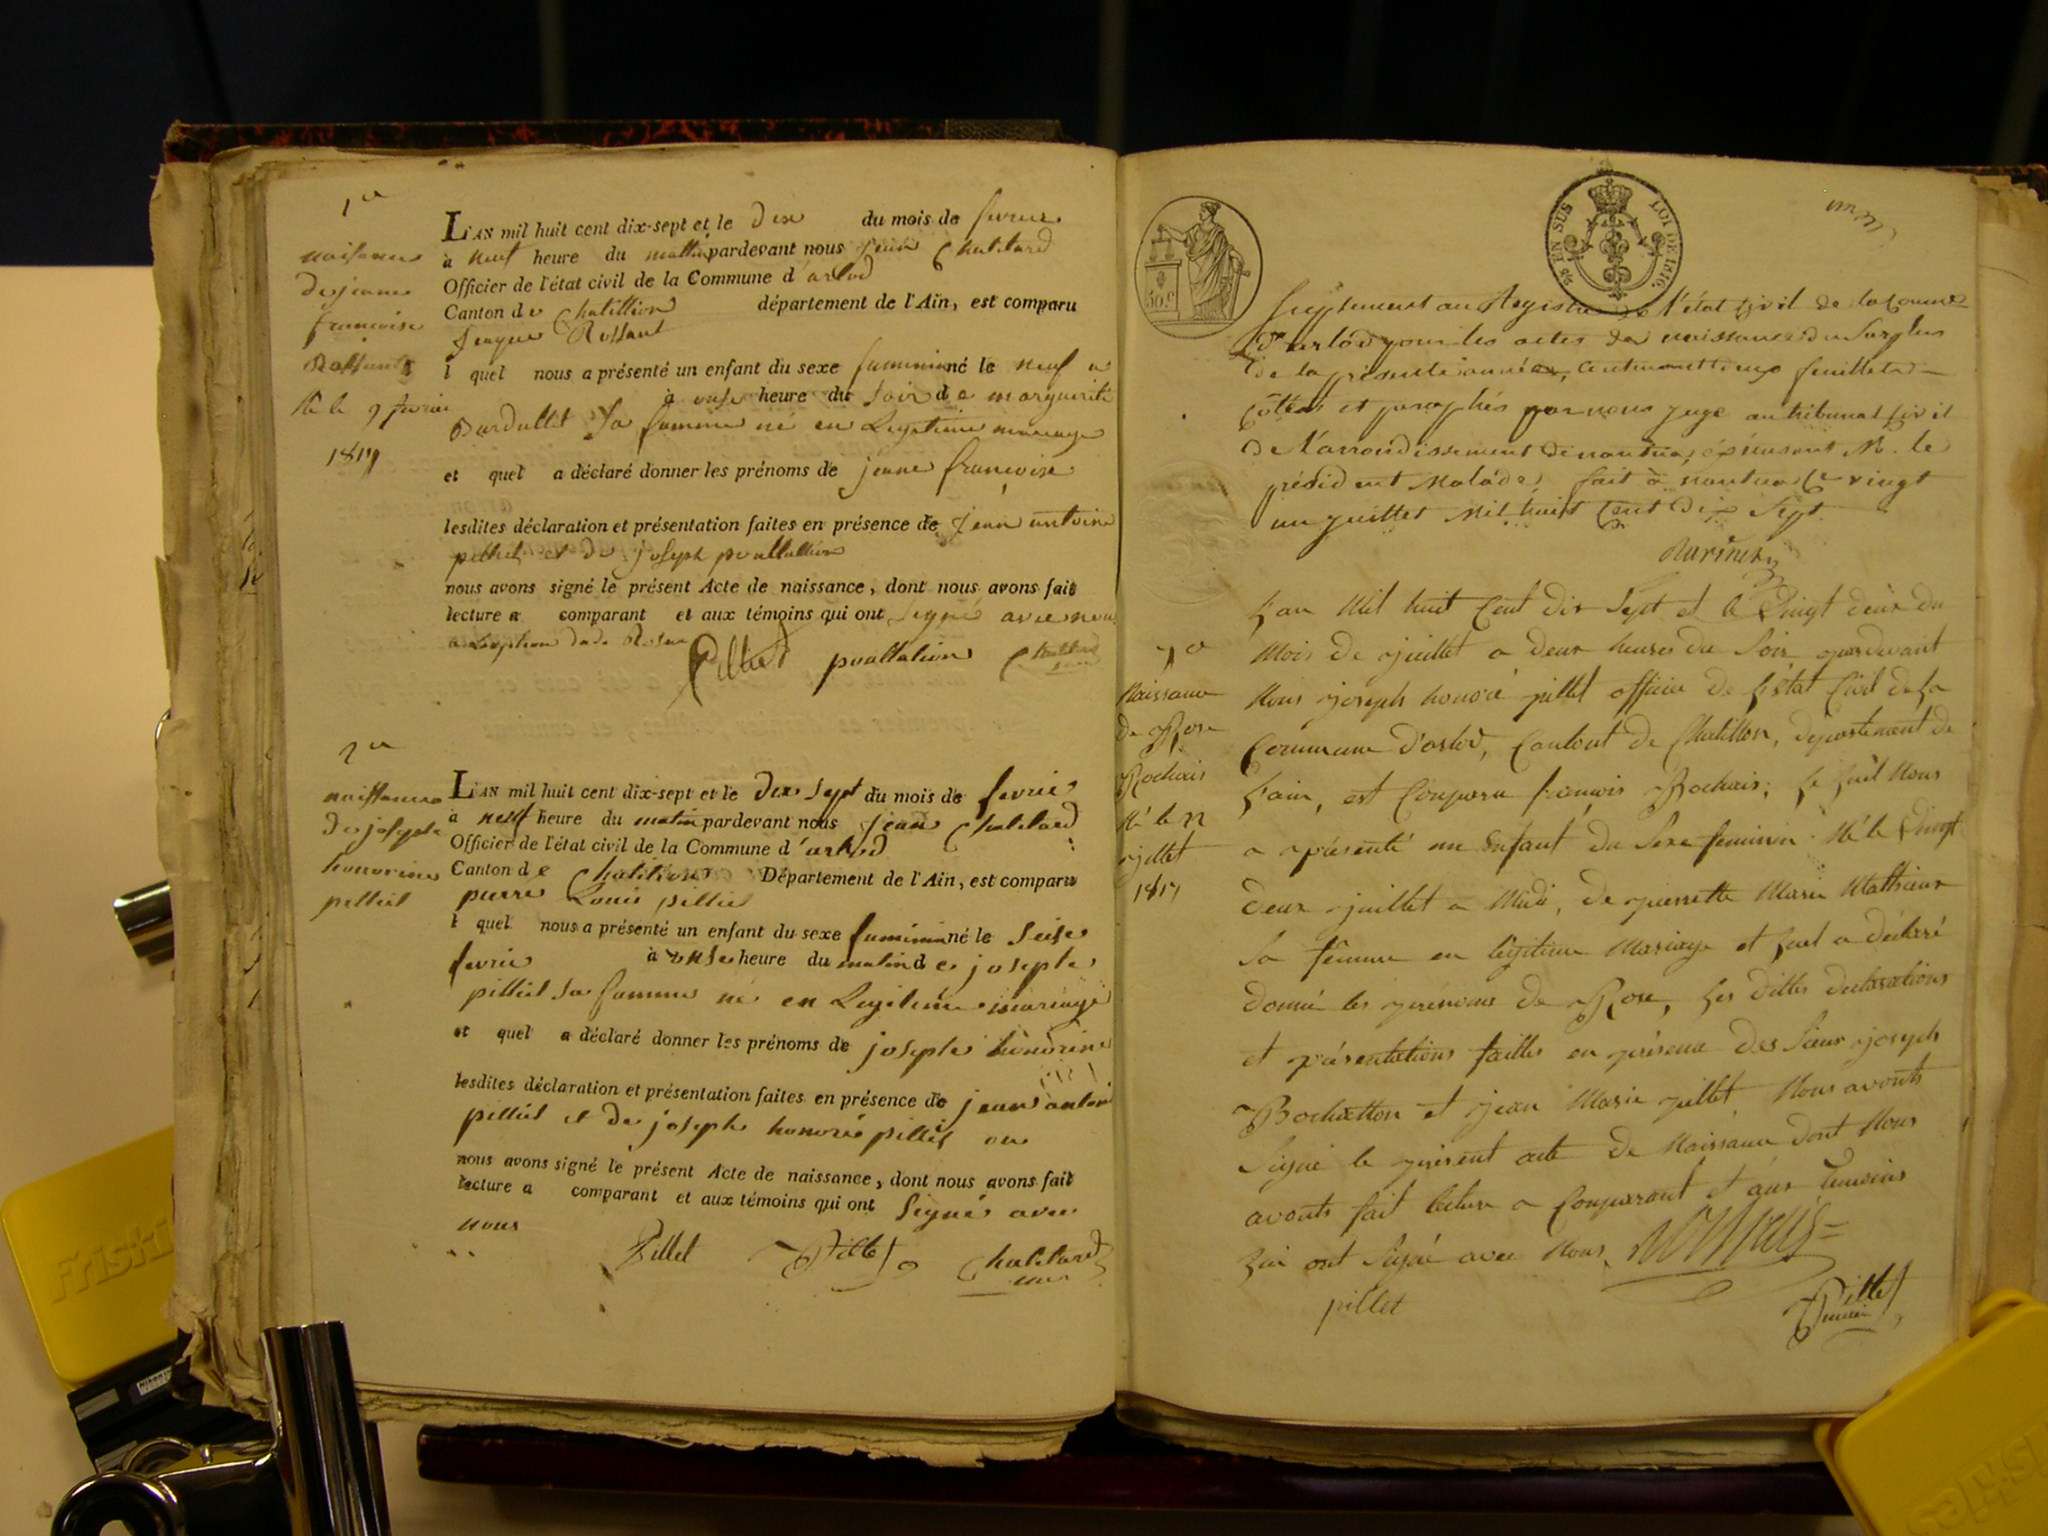 1er
naissance
de jeanne
francoise
Rossant
Né le 9 fevrier
1817
L'AN mil huit cent dix-sept et le dix du mois de fevrier
à neuf heure du matin pardevant nous jean Chatelard
Officier de l'état civil de la Commune d'arlod
Canton de Chatillion département de l'Ain, est comparu
Rossant
l quel nous a présenté un enfant du sexe feminin né le neuf a
à onse heure du soir de marguerite
sa femme né en Legitime mariage
et quel a déclaré donner les prénoms de jeane françoise
lesdites déclaration et présentation faites en présence de jean antoine
pilliet et de joseph
nous avons signé le présent Acte de naissance, dont nous avons fait
lecture a comparant et aux témoins qui ont signé avec nous
Pilliet Chatelard
2e
naissance
de josephe
honorine
pilliet
L'AN mil huit cent dix-sept et le dix sept du mois de fevrie
à neuf heure du matin pardevant nous jean Chatelard
Officier de l'état civil de la Commune d'arlod
Canton de Chatillion Département de l'Ain, est comparu
pierre Louis pilliet
l quel nous a présenté un enfant du sexe feminin né le seise
fevrie à onse heure du matin de josephe
pilliet sa femme né en Legitime mariage
et quel a déclaré donner les prénoms de josephe honorine
lesdites déclaration et présentation faites en présence de jean antoin
pilliet et de joseph honoré pilliet
nous avons signé le présent Acte de naissance, dont nous avons fait
lecture a comparant et aux témoins qui ont signés avec
nous
Pillet Pillet Chatelard
50.c
EN SUS LOI DE 1816.
Supplement au Registre de l'état Civil de la Commune
d'arlod pour les actes de naissance du Surplus
de la presente année, Contenant feuillets
Cottés et paraphés par nous juge au tribunal Civil
de l'arrondissement de nantua, M. le
président Malade, fait à nantua le vingt
un juillet Mil huit Cent Dix Sept
Naissance
de Rose
Rochais
Né le 22
juillet
1817
L'an Mil huit Cent dix Sept et le Vingt deux du
Mois de juillet a deux heures du Soir pardevant
Nous joseph honoré pillet officier de L'état Civil de La
Commune D'arlod, Cantont de Chatillon, département de
L'ain, est Comparu françois Rochais; Le quel Nous
a présenté un Enfant du Sexe feminin Né le Vingt
deux juillet a Midi, de pierrette Marie Mathieux
Sa femme en légitime Mariage et quel a déclaré
donné les prénoms de Rose, Les dittes declarations
et présentations faittes en présence des Sieur joseph
et jean Marie pillet Nous avonts
Signé le present acte de Naissance dont Nous
avonts fait lecture a Comparant et aux temoins
qui ont Signé avec Nous.
pillet Pillet